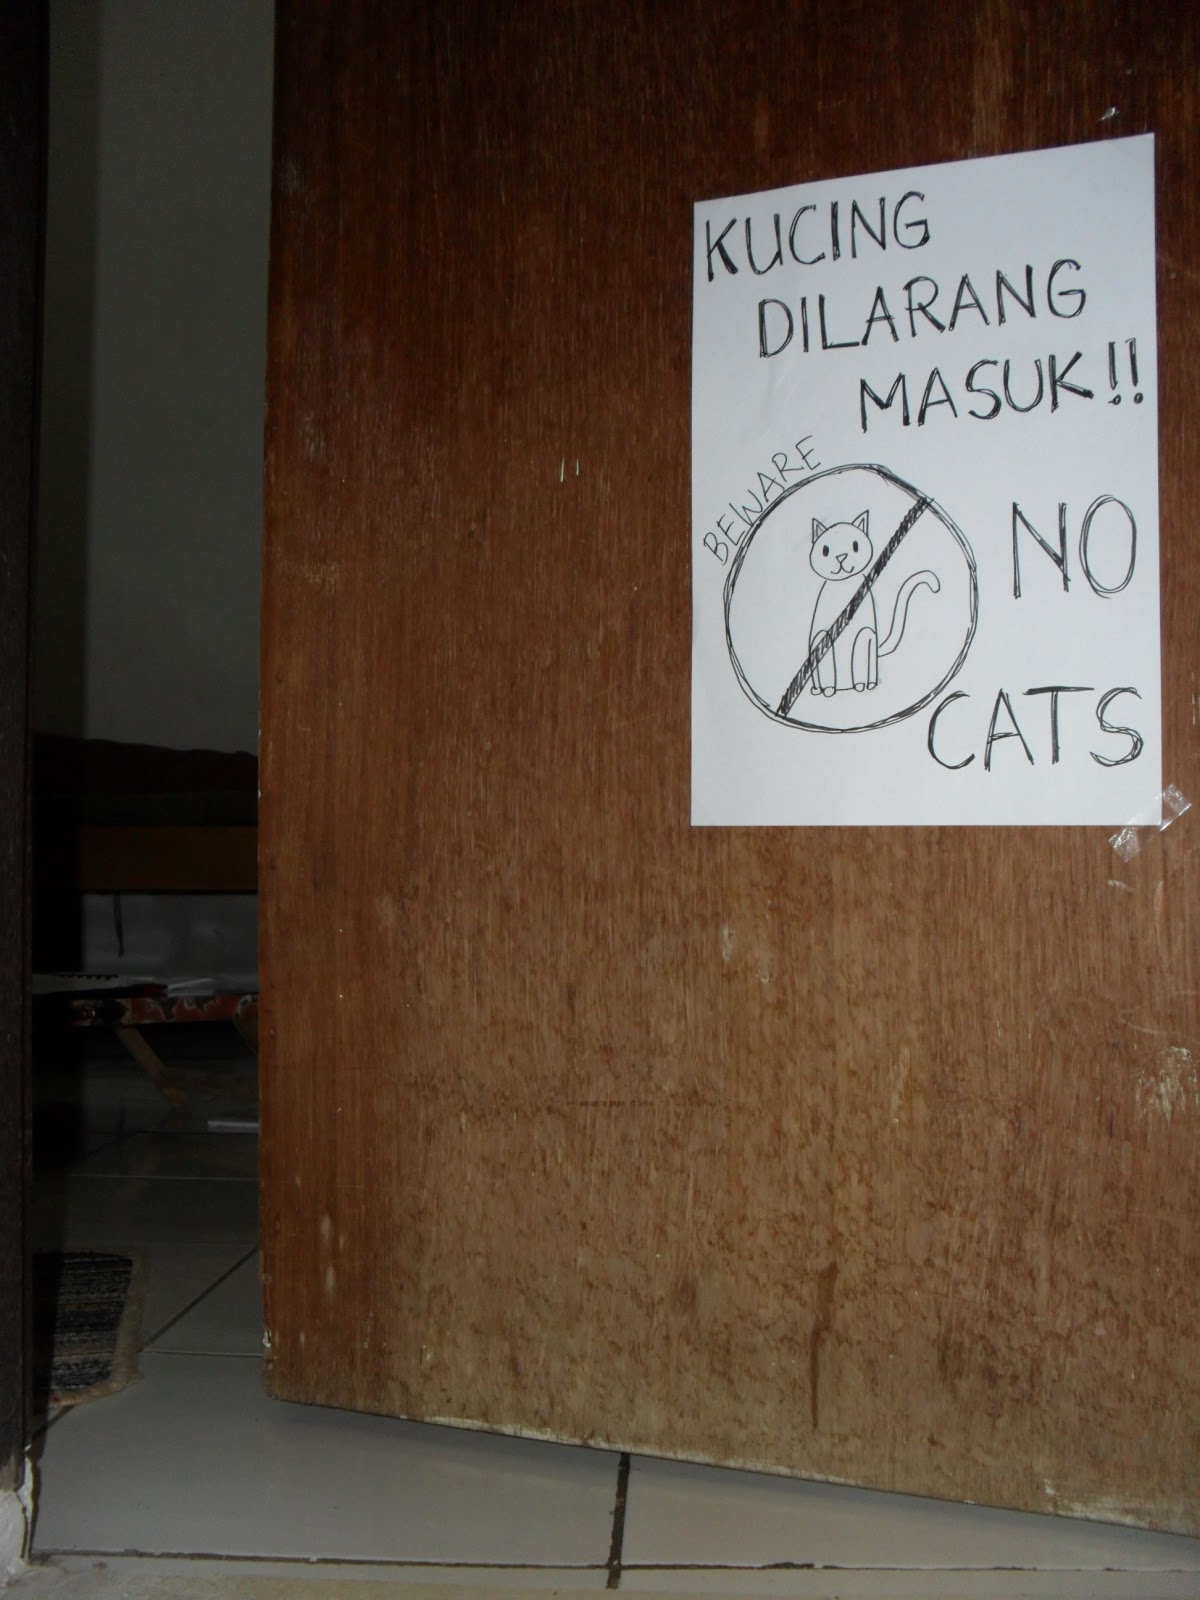 KUCING
DILARANG
MASUK!!
BEWARE
NO
CATS